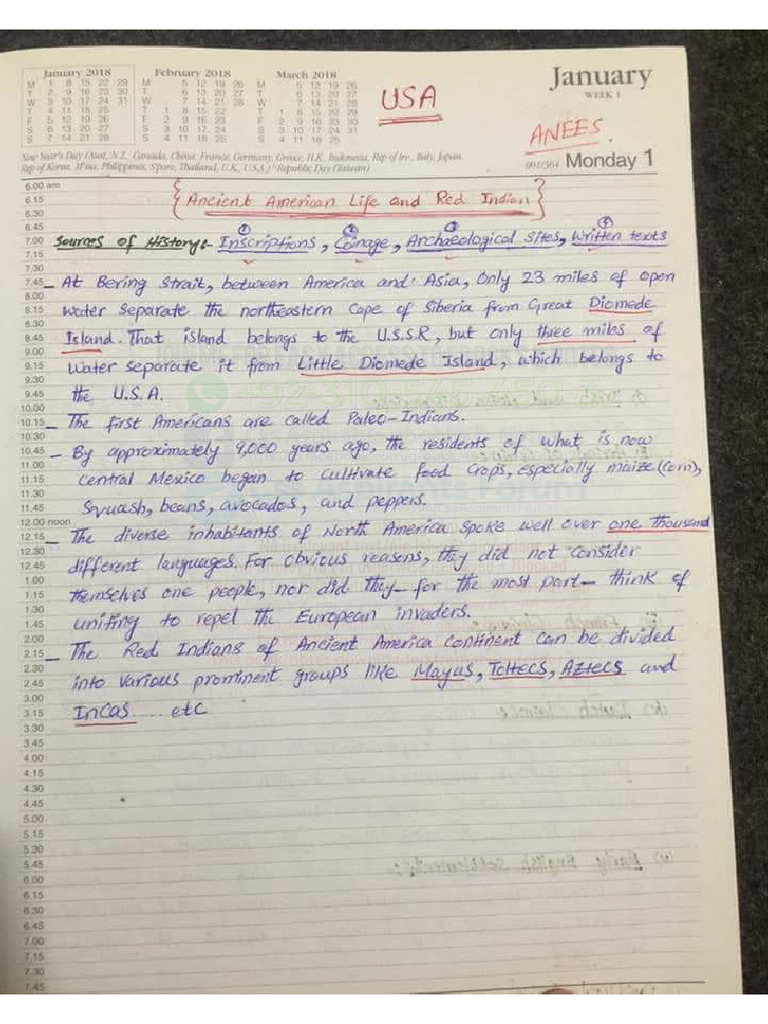 January 2018 February 2018 March 2018
M 1 8 15 22 29 M 5 12 19 26 M 5 12 19 26
T 2 9 16 23 30 T 6 13 20 27 T 6 13 20 27
W 3 10 17 24 31 W 7 14 21 28 W 7 14 21 28
T 4 11 18 25 T 1 8 15 22 T 1 8 15 22 29
F 5 12 19 26 F 2 9 16 23 F 2 9 16 23 30
S 6 13 20 27 S 3 10 17 24 S 3 10 17 24 31
S 7 14 21 28 S 4 11 18 25 S 4 11 18 25
USA
January
WEEK 1
ANEES
New Year's Day (Aust, N.Z., Canada, China, France, Germany, Greece, H.K., Indonesia, Rep of Ire., Italy, Japan,
Rep of Korea, M'sia, Philippines, S'pore, Thailand, U.K., U.S.A.) ^ Republic Day (Taiwan)
001/364 Monday 1
6.00 am
6.15 {Ancient American Life and Red Indian}
6.30
6.45 ① ② ③ ④
7.00 Sources of History:- Inscriptions, Coinage, Archaeological sites, Written texts
7.15
7.30
7.45 - At Bering Strait, between America and Asia, Only 23 miles of open
8.00
8.15 water separate the northeastern Cape of Siberia from Great Diomede
8.30
8.45 Island. That island belongs to the U.S.S.R, but only three miles of
9.00
9.15 water separate it from Little Diomede Island, which belongs to
9.30
9.45 the U.S.A.
10.00
10.15 - The first Americans are called Paleo-Indians.
10.30
10.45 - By approximately 9,000 years ago, the residents of what is now
11.00
11.15 central Mexico began to cultivate food crops, especially maize (corn),
11.30
11.45 Squash, beans, avocados, and peppers.
12.00 noon
12.15 - The diverse inhabitants of North America spoke well over one thousand
12.30
12.45 different languages. For obvious reasons, they did not consider
1.00
1.15 themselves one people, nor did they - for the most part - think of
1.30
1.45 unifing to repel the European invaders.
2.00
2.15 - The Red Indians of Ancient America Continent can be divided
2.30
2.45 into various prominent groups like Mayus, Toltecs, Aztecs and
3.00
3.15 Incas ..... etc
3.30
3.45
4.00
4.15
4.30
4.45
5.00
5.15
5.30
5.45
6.00
6.15
6.30
6.45
7.00
7.15
7.30
7.45